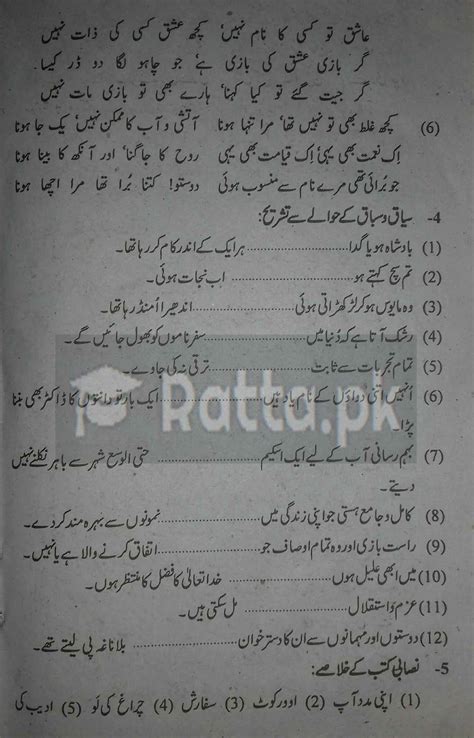 عاشق تو کسی کا نام نہیں، کچھ عشق کسی کی ذات نہیں
گر بازی عشق کی بازی ہے، جو چاہو لگا دو ڈر کیسا
گر جیت گئے تو کیا کہنا، ہارے بھی تو بازی مات نہیں
(6) کچھ غلط بھی تو نہیں تھا، مرا تنہا ہونا آتش و آب کا ممکن نہیں، یک جا ہونا
اِک نعمت بھی یہی اِک قیامت بھی یہی روح کا جاگنا، اور آنکھ کا بینا ہونا
جو بُرائی تھی مرے نام سے منسوب ہوئی دوستو! کتنا بُرا تھا مرا اچھا ہونا
4- سیاق و سباق کے حوالے سے تشریح:
(1) بادشاہ ہو یا گدا .......... ہر ایک کے اندر کام کر رہا تھا۔
(2) تم سچ کہتے ہو .......... اب نجات ہوئی۔
(3) وہ مایوس ہو کر لڑکھڑاتی ہوئی .......... اندھیرا اُمنڈ رہا تھا۔
(4) رشک آتا ہے کہ دُنیا میں .......... سفرناموں کو بھول جائیں گے۔
(5) تمام تجربات سے ثابت .......... ترقی نہ کی جاوے۔
(6) اُنھیں اتنی دواؤں کے نام یاد ہیں .......... ایک بار تو دانتوں کا ڈاکٹر بھی بننا
پڑا۔
Ratta.pk
(7) بہم رسانی آب کے لیے ایک اسکیم .......... حتی الوسع شہر سے باہر نکلنے نہیں
دیتے۔
(8) کامل و جامع ہستی جو اپنی زندگی میں .......... نمونوں سے بہرہ مند کر دے۔
(9) راست بازی اور وہ تمام اوصاف جو .......... اتفاق کرنے والا ہے یا نہیں۔
(10) میں ابھی علیل ہوں .......... خدا تعالیٰ کا فضل کا منتظر ہوں۔
(11) عزم و استقلال .......... مل سکتی ہیں۔
(12) دوستوں اور مہمانوں سے ان کا دسترخوان .......... بلا ناغہ پی لیتے تھے۔
5- نصابی کتب کے خلاصے:
(1) اپنی مدد آپ (2) اوورکوٹ (3) سفارش (4) چراغ کی لَو (5) ادیب کی